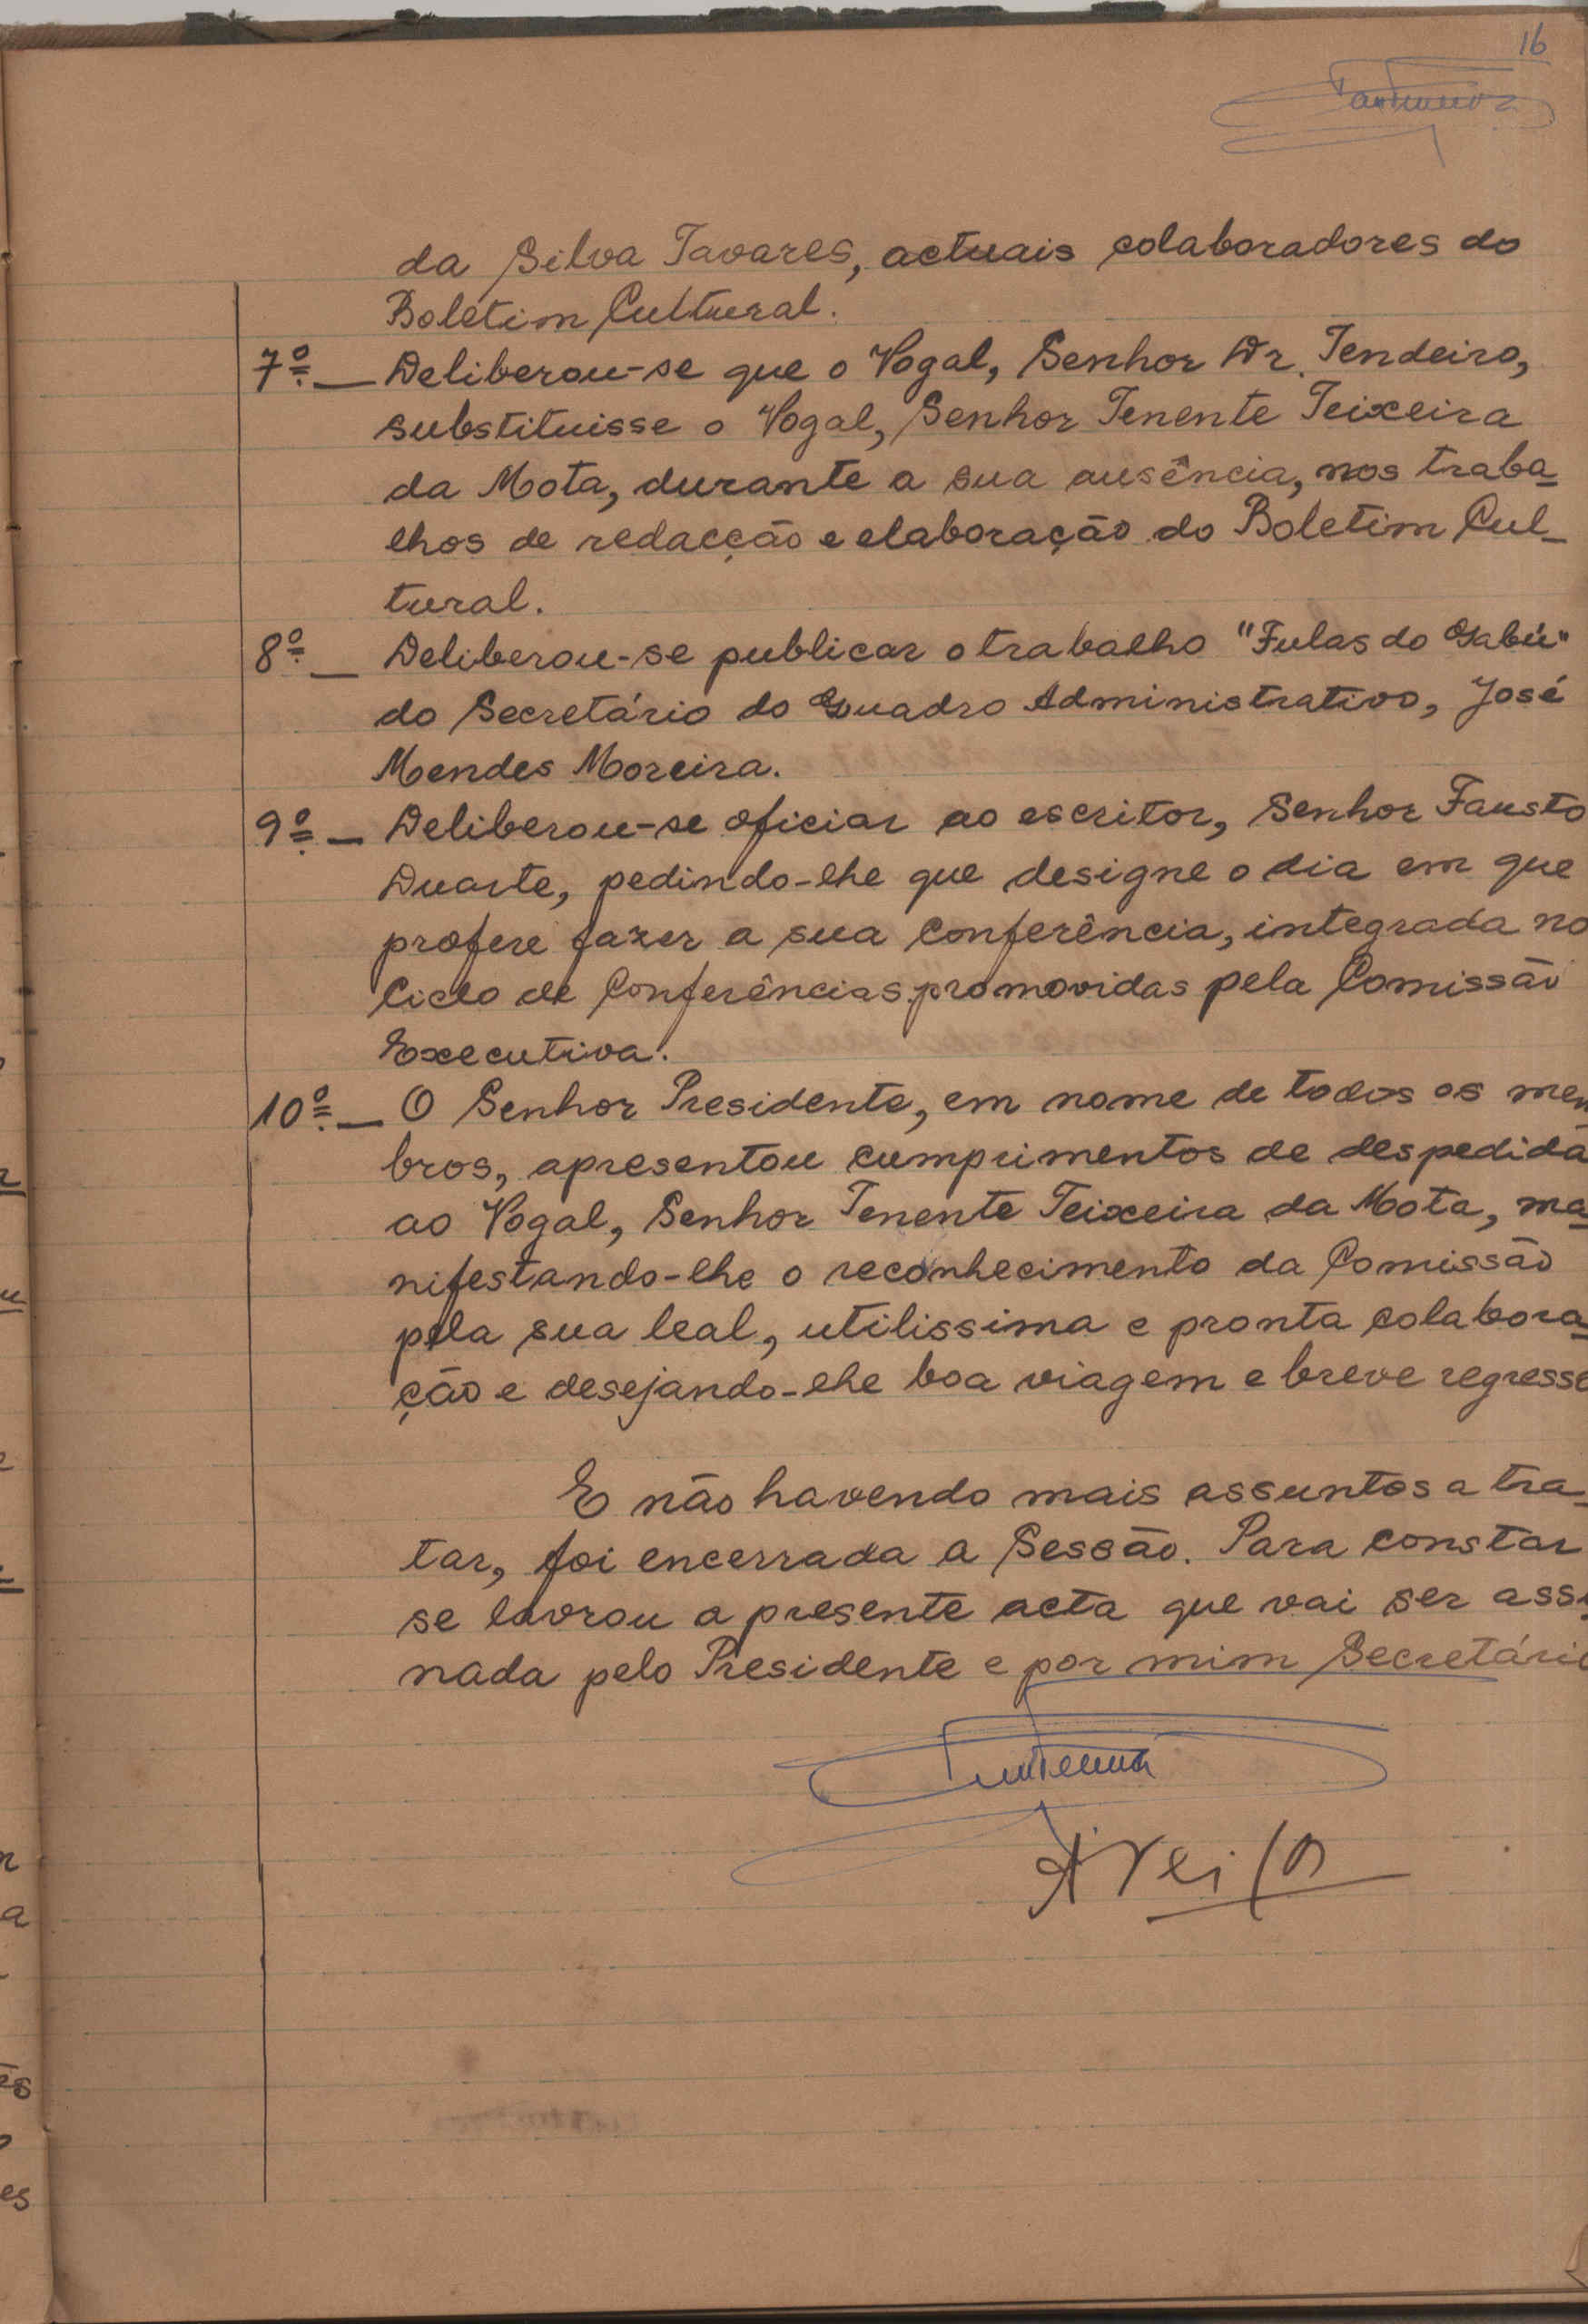 16
da Silva Tavares, actuais colaboradores do
Boletim Cultural.
7º — Deliberou-se que o Vogal, Senhor Dr. Tendeiro,
substituisse o Vogal, Senhor Tenente Teixeira
da Mota, durante a sua ausência, nos traba-
lhos de redacção e elaboração do Boletim Cul-
tural.
8º — Deliberou-se publicar o trabalho "Fulas do Gabú"
do Secretário do Quadro Administrativo, José
Mendes Moreira.
9º — Deliberou-se oficiar ao escritor, Senhor Fausto
Duarte, pedindo-lhe que designe o dia em que
profere fazer a sua conferência, integrada no
Ciclo de Conferências promovidas pela Comissão
Executiva.
10º — O Senhor Presidente, em nome de todos os mem
bros, apresentou cumprimentos de despedida
ao Vogal, Senhor Tenente Teixeira da Mota, ma-
nifestando-lhe o reconhecimento da Comissão
pela sua leal, utilissima e pronta colabora-
ção e desejando-lhe boa viagem e breve regresso
E não havendo mais assuntos a tra-
tar, foi encerrada a Sessão. Para constar
se lavrou a presente acta que vai ser assi
nada pelo Presidente e por mim Secretário